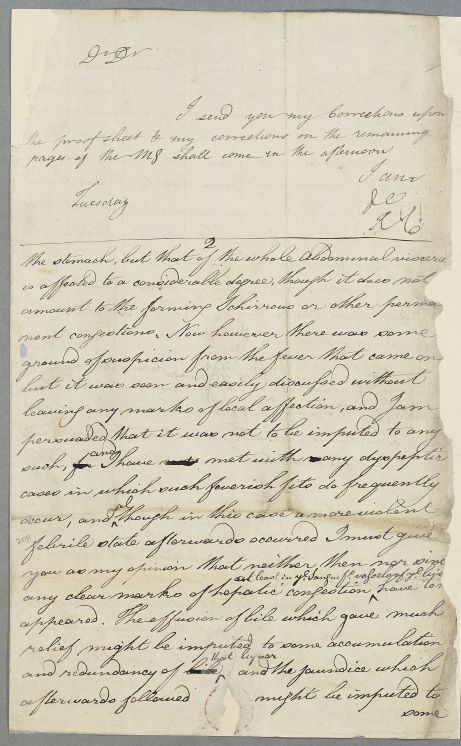 Dr Dr
I send you my Corrections upon
the proof sheet & my corrections on the remaining
pages of the MS shall come in the afternoon
I am
Tuesday
2
the stomach, but that of the whole Abdominal viscera
is affected to a considerable degree, though it does not
amount to the forming Schirrous or other perma
nent congestions. Now however there was some
ground of suspicion from the fever that came on
but it was soon and easily discussed without
leaving any marks of local affection, and I am
persuaded that it was not to be imputed to any
such, and I have met with many dyspeptic
cases in which such feverish fits do frequently
occur, and although in this case a more violent
febrile state afterwards occurred I must give
you as my opinion that neither then nor since
at least in ye Sanguifs. vessels of ye liver
any clear marks of hepatic congestion have
appeared. The effusion of bile which gave much
relief might be imputed to some accumulation
that liquor
and redundancy of and the jaundice which
afterwards followed might be imputed to
some